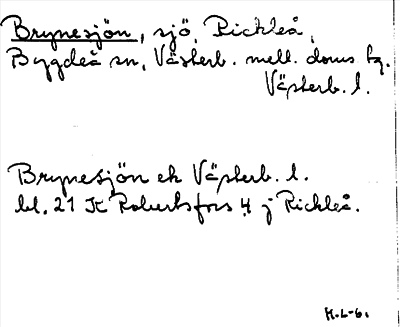 Brynesjön, sjö, Rickleå,
Bygdeå sn, Västerb. mell. doms fg.
Västerb. l.
Brynesjön ek Västerb. l.
bl. 21 JK Robertsfors 4 j Rickleå.
H.L-6.